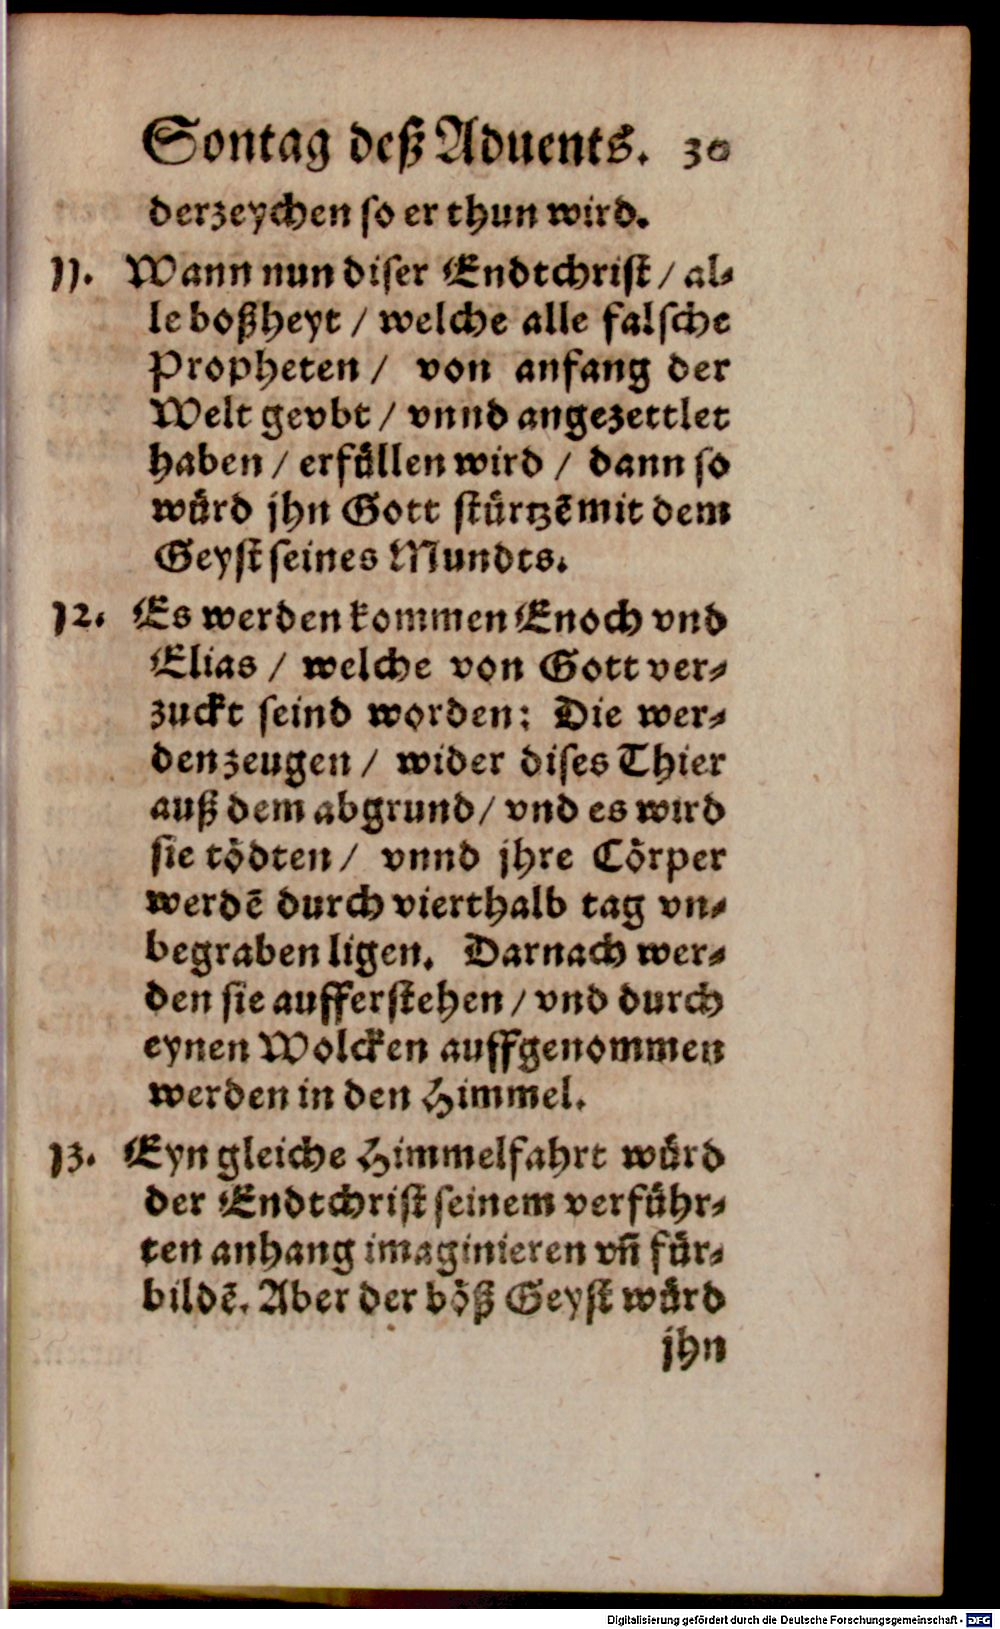 Sontag deß Aduents. 30
derzeychen so er thun wird.
11. Wann nun diser Endtchrist / al-
le boßheyt / welche alle falsche
Propheten / von anfang der
Welt gevbt / vnnd angezettlet
haben / erfüllen wird / dann so
würd jhn Gott stürtzē mit dem
Geyst seines Mundts.
12. Es werden kommen Enoch vnd
Elias / welche von Gott ver-
zuckt seind worden: Die wer-
den zeugen / wider dises Thier
auß dem abgrund / vnd es wird
sie tödten / vnnd jhre Cörper
werdē durch vierthalb tag vn-
begraben ligen. Darnach wer-
den sie aufferstehen / vnd durch
eynen Wolcken auffgenommen
werden in den Himmel.
13. Eyn gleiche Himmelfahrt würd
der Endtchrist seinem verführ-
ten anhang imaginieren vñ für-
bildē. Aber der böß Geyst würd
jhn
Digitalisierung gefördert durch die Deutsche Forschungsgemeinschaft - DFG